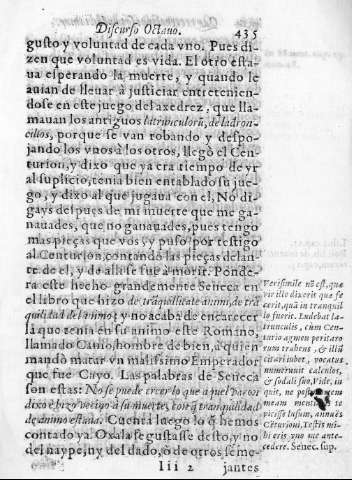 Discurso Octauo. 435
gusto y voluntad de cada vno. Pues di-
zen que voluntad es vida. El otro esta-
ua esperando la muerte, y quando le
auian de lleuar à justiciar entretenien-
dose en este juego del axedrez, que lla-
mauan los antiguos latrunculorũ, de ladron-
cillos, porque se van robando y despo-
jando los vnos à los otros, llegò el Cen-
turion, y dixo que ya era tiempo de yr
al suplicio, tenia bien entablado su jue-
go, y dixo al que jugaua con el, No di-
gays despues de mi muerte que me ga-
nauades, que no ganauades, pues tengo
mas pieças que vos, y puso por testigo
al Centurion, contando las pieças delan-
te de el, y de alli se fue à morir. Ponde-
ra este hecho grandemente Seneca en
el libro que hizo de trãquilitate animi, de trã
quilidad del animo, y no acaba de encarecer
la que tenia en su animo este Romano,
llamado Canio, hombre de bien, a quien
mandò matar vn malissimo Emperador
que fue Cayo. Las palabras de Seneca
son estas: No se puede creer lo que aquel varon
dixo è hizo vecino à su muerte, con q̃ tranquilidad
de animo estaua. Cuenta luego lo q̃ hemos
contado ya. Oxala se gustasse desto, y no
del naype, ny del dado, ò de otros seme-
Iii 2 jantes
Verisimile nõ est, quæ
vir ille dixerit que fe
cerit, quã in tranquil
lo fuerit. Ludebat la-
trunculis, cùm Cen-
turio agmen peritura
rum trahens, & illũ
citari iubet, vocatus,
numerauit calculos,
& sodali suo, Vide, in
quit, ne post
meam mente te
vicisse. Tum, annuẽs
Cẽturioni, Testis mi-
hi eris vno me ante-
cedere. Senec. sup.